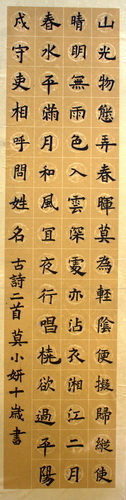 山光物態弄春暉莫為輕陰便擬歸縱使
晴明無雨色入雲深處亦沾衣湘江二月
春水平滿月和風宜夜行唱橈欲過平陽
戍守吏相呼問姓名 古詩二首 莫小妍十歲書